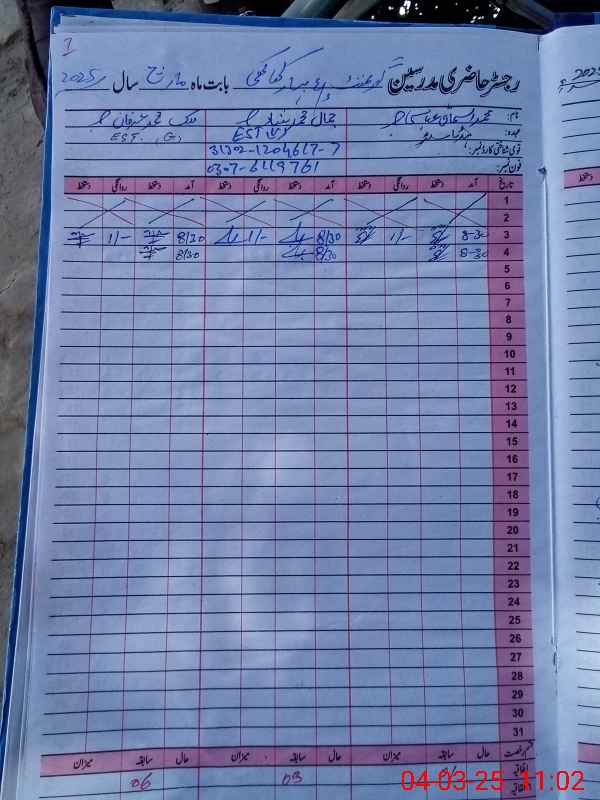 1
رجسٹر حاضری مدرسین گورنمنٹ بابت ماہ مارچ سال 2025
نام: محمد اسحاق جمال محمد ملک محمد
عہدہ: EST EST. (G)
قومی شناختی کارڈ نمبر: 31202-1204617-7
فون نمبر: 0307-6119761
تاریخ آمد دستخط روانگی دستخط آمد دستخط روانگی دستخط آمد دستخط روانگی دستخط
1
2
3 8-30 1/- 8/30 1/- 8/30 1/-
4 8-30 8/30 8/30
5
6
7
8
9
10
11
12
13
14
15
16
17
18
19
20
21
22
23
24
25
26
27
28
29
30
31
قسم رخصت حال سابقہ میزان حال سابقہ میزان حال سابقہ میزان
اتفاقیہ 03 06
04-03-25 11:02